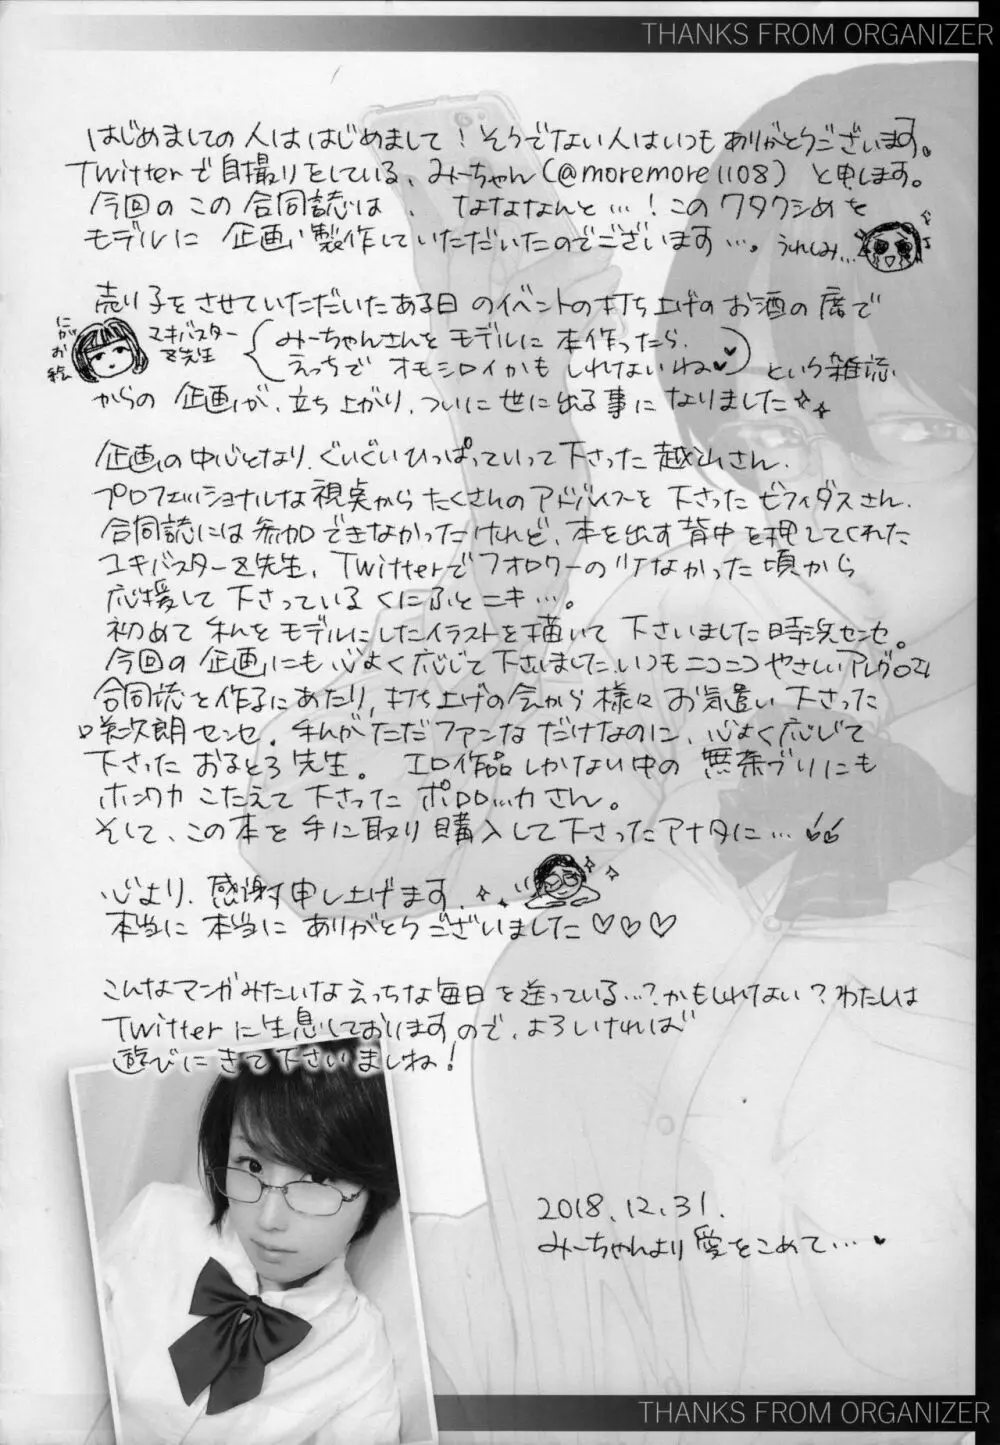 THANKS FROM ORGANIZER
はじめましての人ははじめまして！そうでない人はいつもありがとうございます。
Twitterで自撮りをしている、みーちゃん（@moremore1108）と申します。
今回のこの合同誌は、なななんと…！このワタクシめを
モデルに企画、製作していただいたのでございます…。うれしみ…
売り子をさせていただいたある日のイベントの打ち上げのお酒の席で
にがお絵
ユキバスターZ先生
みーちゃんさんをモデルに本作ったら、
えっちでオモシロイかもしれないね
という雑談
からの企画が、立ち上がり、ついに世に出る事になりました
企画の中心となり、ぐいぐいひっぱっていって下さった越山さん、
プロフェッショナルな視点からたくさんのアドバイスを下さったビフィダスさん、
合同誌には参加できなかったけれど、本を出す背中を押してくれた
ユキバスターZ先生、Twitterでフォロワーの少なかった頃から
応援して下さっているくにふとニキ…。
初めて私をモデルにしたイラストを描いて下さいました時浜センセ。
今回の企画にも心よく応じて下さいました、いつもニコニコやさしいアレグロさん
合同誌を作るにあたり、打ち上げの会から様々お気遣い下さった
咲次朗センセ。私がただファンなだけなのに、心よく応じて
下さったおるとろ先生。エロ作品しかない中の無茶ブリにも
ホンワカこたえて下さったポロロッカさん。
そして、この本を手に取り購入して下さったアナタに…
心より、感謝申し上げます
本当に本当にありがとうございました♡♡♡
こんなマンガみたいなえっちな毎日を送っている…？かもしれない？わたしは
Twitterに生息しておりますので、よろしければ
遊びにきて下さいましね！
2018.12.31.
みーちゃんより愛をこめて…♥
THANKS FROM ORGANIZER